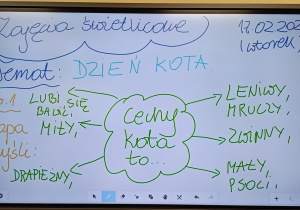 Zajęcia świetlicowe
17.02.202
(wtorek)
temat: DZIEŃ KOTA.
LUBI SIĘ
BAWIĆ,
MIŁY,
DRAPIEŻNY,
Cechy
kota
to...
LENIWY,
MRUCZY,
ZWINNY,
MAŁY,
PSOCI,